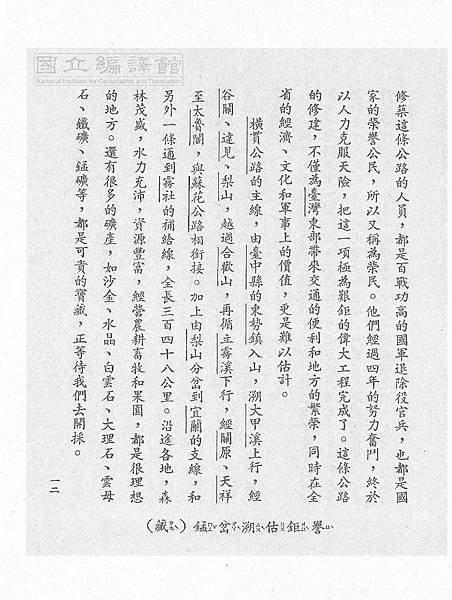 國立編譯館
National Institute for Compilation and Translation
修築這條公路的人員，都是百戰功高的國軍退除役官兵，也都是國
家的榮譽公民，所以又稱為榮民。他們經過四年的努力奮鬥，終於
以人力克服天險，把這一項極為艱鉅的偉大工程完成了。這條公路
的修建，不僅為臺灣東部帶來交通的便利和地方的繁榮，同時在全
省的經濟、文化和軍事上的價值，更是難以估計。
橫貫公路的主線，由臺中縣的東勢鎮入山，溯大甲溪上行，經
谷關、達見、梨山，越過合歡山，再循立霧溪下行，經關原、天祥
至太魯閣，與蘇花公路相銜接。加上由梨山分岔到宜蘭的支線，和
另外一條通到霧社的補給線，全長三百四十八公里。沿途各地，森
林茂盛，水力充沛，資源豐富，經營農耕畜牧和果園，都是很理想
的地方。還有很多的礦產，如沙金、水晶、白雲石、大理石、雲母
石、鐵礦、錳礦等，都是可貴的寶藏，正等待我們去開採。
一二
譽鉅估溯岔錳（藏）